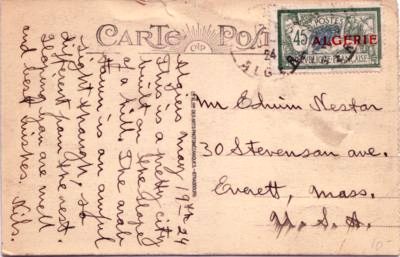 CARTE POSTALE
45
POSTES
ALGERIE
REPUBLIQUE FRANÇAISE
24
Algiers May 19th 24
This is a pretty city
built on the slope
of a hill. The arab
town is an awful
sight though, so
different from the rest.
Hoping you are well
and best wishes. Nils.
Mr Edwin Nestor
30 Stevenson ave.
Everett, Mass.
U.S.A.
10-